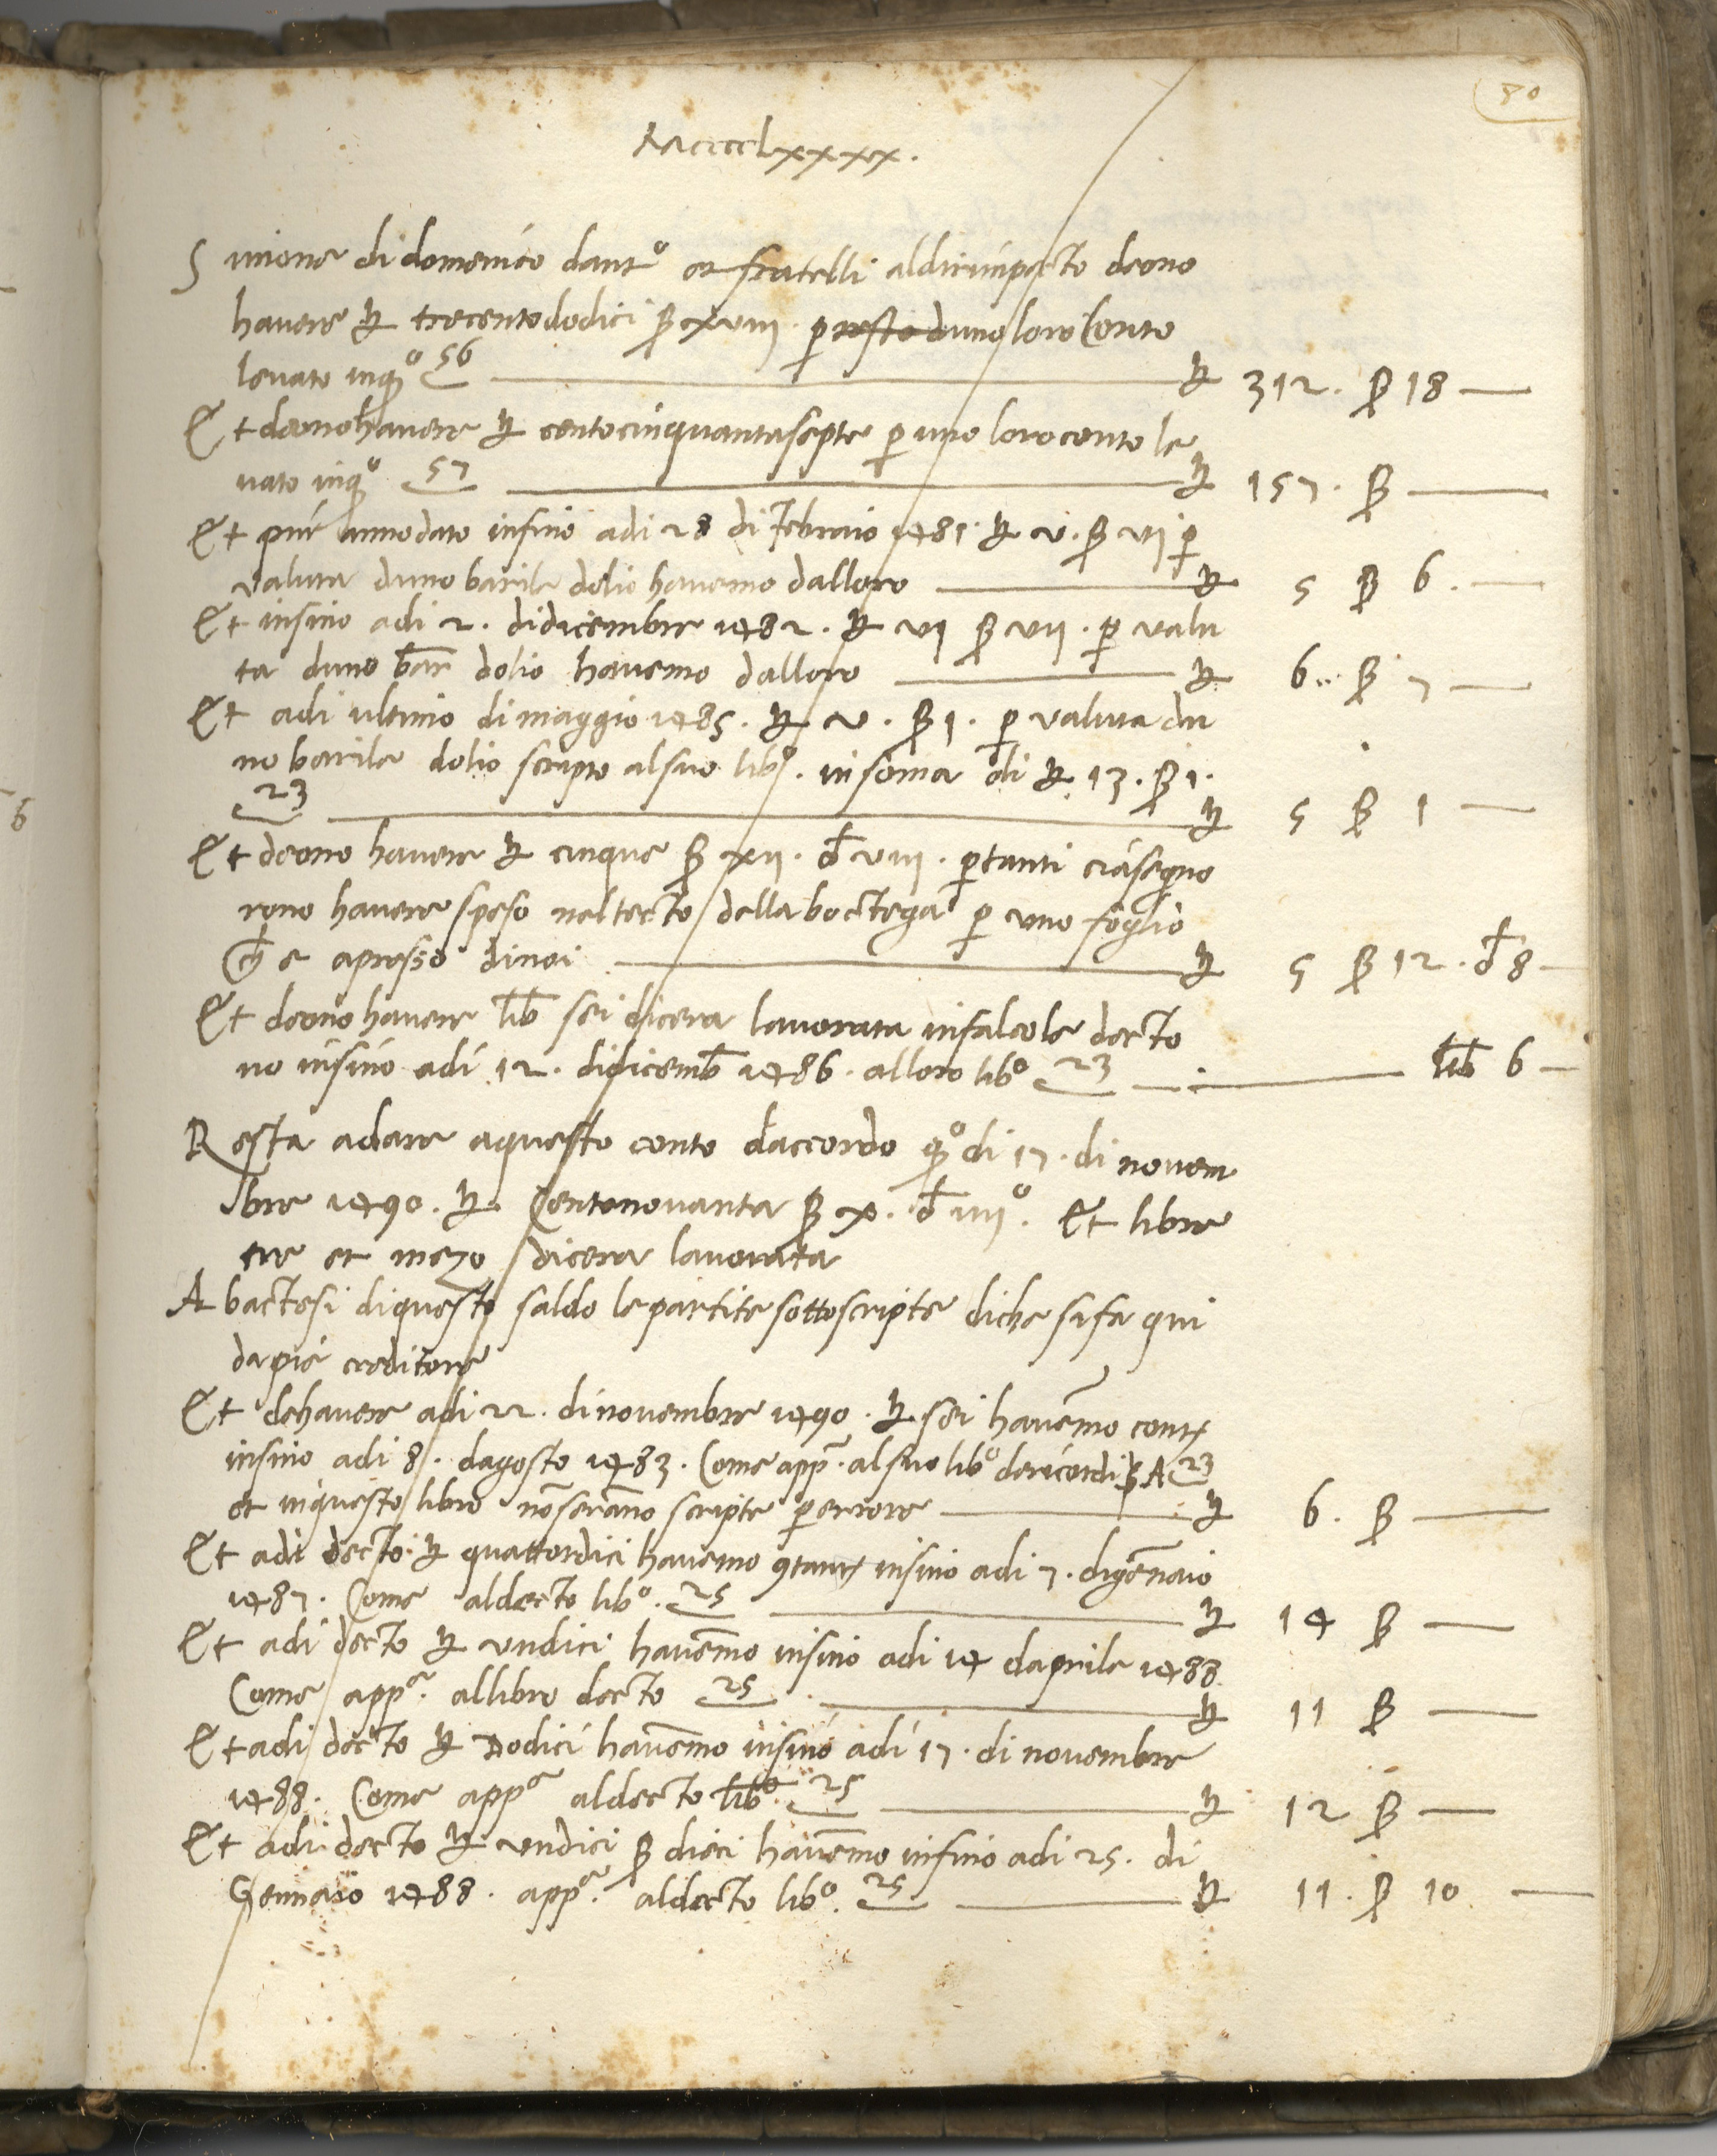 80
Mcccclxxxx.
Simone di domenico dant° et fratelli aldirimpecto deono
havere ₶ trecentododici ß xviii. p resto duno loro Conto
levato inq° 56 ₶ 312. ß 18 —
Et deono havere ₶ centocinquantasepte p uno loro conto le
vato inq° 57 ₶ 157. ß —
Et piu annodato insino adi 28 di Febraio 1481. ₶ v. ß vi p
valuta duno barile dolio havemo dalloro ₶ 5 ß 6. —
Et insino adi 2. didicembre 1482. ₶ vi ß vii. p valu
ta duno bar dolio havemo dalloro ₶ 6.. ß 7 —
Et adi ultimo di maggio 1485. ₶ v. ß 1. p valuta du
no barile dolio scripto alsuo lib°. in soma di ₶ 13. ß 1.
23 ₶ 5 ß 1 —
Et deono havere ₶ cinque ß xii. đ viii. p tanti ciasegno
rono havere speso nel tecto della boctega p uno foglio
Ch e apresso dinoi ₶ 5 ß 12. đ 8 —
Et deono havere lib sei dicera lavorata in falcole decto
no insino adi 12. didicemb 1486. alloro lib° 23 — lib 6 —
Resta adare aquesto conto daccordo q° di 17. di novem
bre 1490. ₶. Centonovanta ß x. đ iiii°. Et libre
tre et mezo dicera lavorata
Abactesi diquesto saldo le partite sottoscripte diche si fa qui
dapie creditore
Et dehavere adi 22. di novembre 1490. ₶ sei havemo cont
insino adi 8. dagosto 1483. Come app. alsuo lib° dericordi ß A 23
et inquesto libro no serano scripte p errore ₶ 6. ß —
Et adi decto ₶ quattordici havemo 9tanti insino adi 7. digennaio
1487. Come aldecto lib°. 25 ₶ 14 ß —
Et adi decto ₶ undici havemo insino adi 14 daprile 1488.
Come app. allibro decto 25 ₶ 11 ß —
Et adi decto ₶ Dodici havemo insino adi 17. di novembre
1488. Come app aldecto lib°. 25 ₶ 12 ß —
Et adi decto ₶ undici ß dieci havemo insino adi 25. di
Gennaio 1488. app. aldecto lib°. 25 ₶ 11. ß 10 —